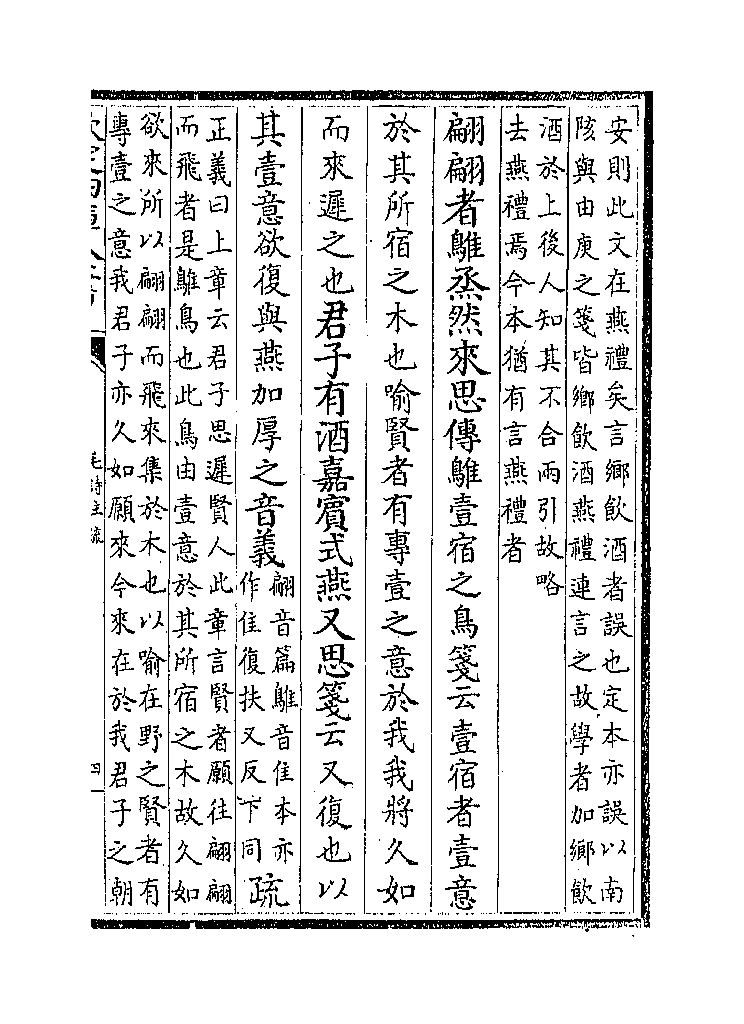 安則此文在燕禮矣言鄉飲酒者誤也定本亦誤以南
陔與由庚之箋皆鄉飲酒燕禮連言之故學者加鄉飲
酒於上後人知其不合兩引故略
去燕禮焉今本猶有言燕禮者
翩翩者鵻烝然來思傳鵻壹宿之鳥箋云壹宿者壹意
於其所宿之木也喻賢者有專壹之意於我我將久如
而來遲之也君子有酒嘉賓式燕又思箋云又復也以
其壹意欲復與燕加厚之音義
翩音篇鵻音隹本亦
作隹復扶又反下同
疏
正義曰上章云君子思遲賢人此章言賢者願往翩翩
而飛者是鵻鳥也此鳥由壹意於其所宿之木故久如
欲來所以翩翩而飛來集於木也以喻在野之賢者有
專壹之意我君子亦久如願來今來在於我君子之朝
毛詩注疏
四